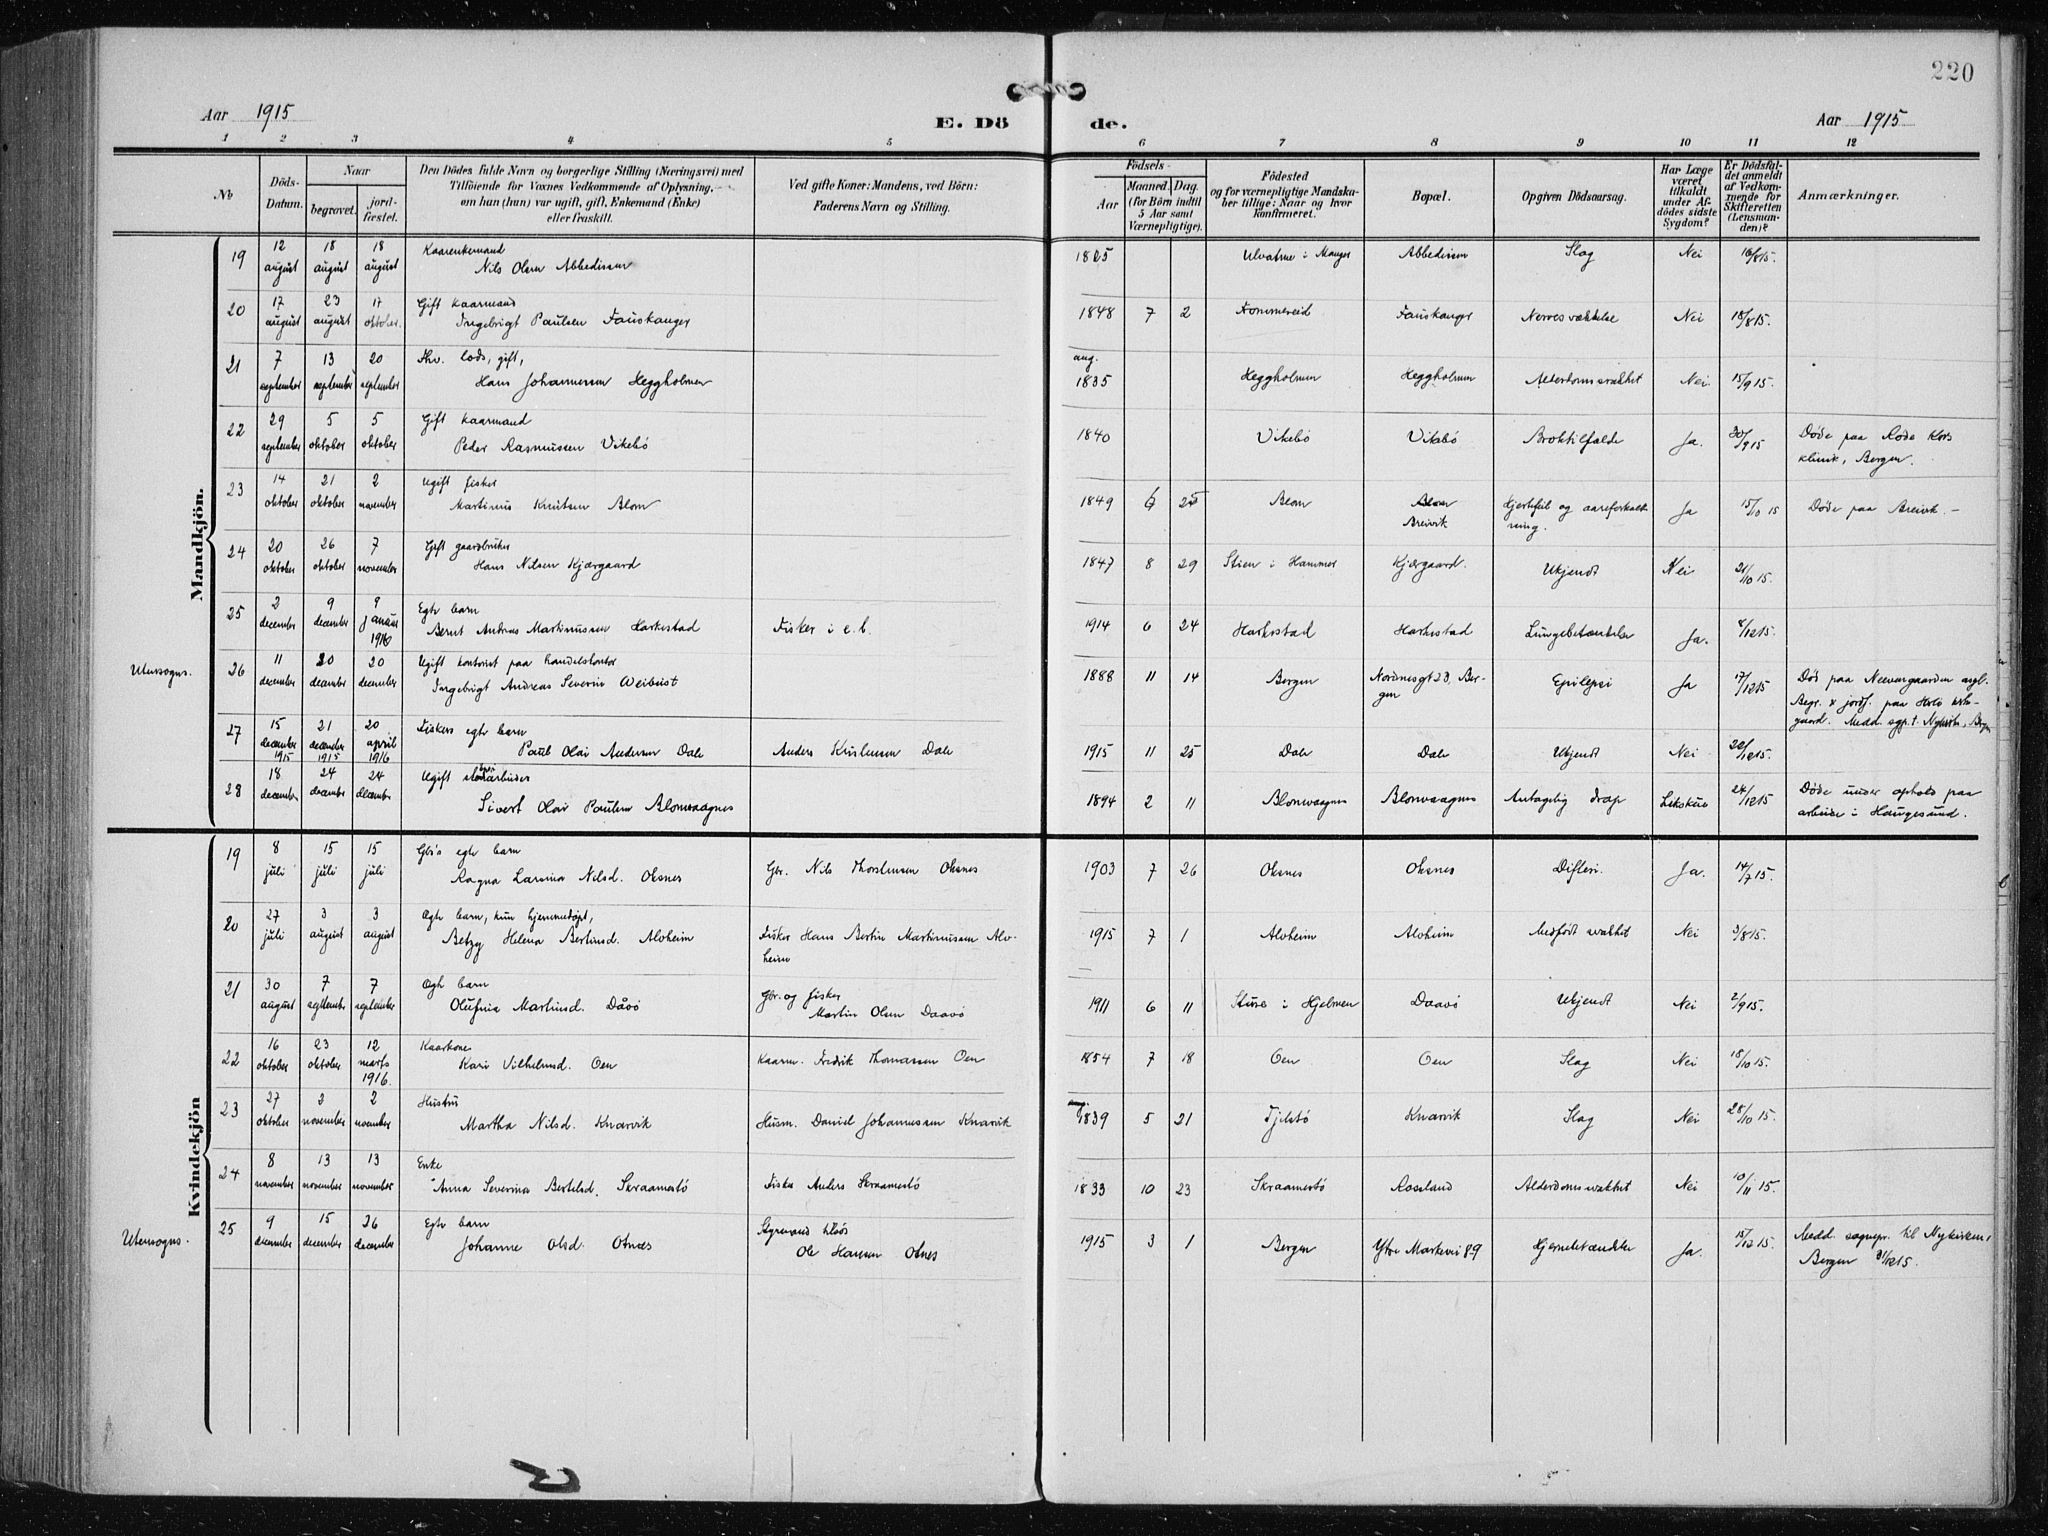 220
Aar 1915
E. Dö de.
Aar 1915
1 2 3 4 5 6 7 8 9 10 11 12
No
Döds-Datum.
Naar
begravet.
jord-fæstet.
Den Dödes fulde Navn og borgerlige Stilling (Næringsvei) med
Tilföiende for Voxnes Vedkommende af Oplysning,
om han (hun) var ugift, gift, Enkemand (Enke)
eller fraskilt.
Ved gifte Koner: Mandens, ved Börn:
Faderens Navn og Stilling.
Födsels-
Aar
Maaned. Dag.
(for Börn indtil
5 Aar samt
Værnepligtige).
Födested
og for værnepligtige Mandska-
ber tillige: Naar og hvor
konfirmeret.
Bopæl.
Opgiven Dödsaarsag.
Har Læge
været
tilkaldt
under Af-
dödes sidste
Sygdom?
Er Dödsfal-
det anmeldt
af Vedkom-
mende for
Skifteretten
(Lensman-
den)?
Anmærkninger.
Mandkjön.
19 12 august 18 august 18 august Kaarenkemand
Nils Olsen Abbedissen 1825 Ulvatne i Manger Abbedissen Slag Nei 16/8 15.
20 17 august 23 august 17 oktober. Gift kaarmand
Ingebrigt Paulsen Fauskanger 1848 7 2 Tommereid Fauskanger Nervesvækkelse Nei 18/8 15.
21 7 september 13 september 20 september Fhv. lods, gift,
Hans Johannessen Heggholmen aug. 1835 Heggholmen Heggholmen Alderdomssvakhet Nei. 15/9 15.
22 29 september 5 oktober 5 oktober Gift kaarmand
Peder Rasmussen Vikebö 1840 Vikebö Vikebö Broktilfælde Ja. 30/9 15 Døde paa Røde Kors
klinik, Bergen.
23 14 oktober 21 oktober 2 november Ugift fisker
Martinus Knutsen Blom 1849 6 25 Blom Blom
Breivik Hjertefeil og aareforkalk-
ning. Ja 15/10 15 Døde paa Breivik.-
24 20 oktober 26 oktober 7 november Gift gaardbruker
Hans Nilsen Kjærgaard 1847 8 29 Stien i Hammer Kjærgaard. Ukjendt Nei 21/10 15.
25 2 december 9 december 9 januar 1916 Egte barn
Bernt Andreas Martinussen Harkestad Fisker i e. b. 1914 6 24 Harkestad Harkestad Lungebetændelse Ja. 8/12 15.
Utensogns. 26 11 december 20 december 20 december Ugift kontorist paa handelskontor
Ingebrigt Andreas Severin 1888 11 14 Bergen Nordnesgt 23, Ber-
gen Epilepsi Ja 17/12 15 Død paa Neevengaarden asyl.
Begr. & jordf. paa Herlø
gaard. Medd. sgpr. t. Nykirken, Bergen
27 15 december 1915 21 december 1915 20 april 1916 Fiskers egte barn
Paul Olai Andersen Dale Anders Kristensen Dale 1915 11 25 Dale Dale Ukjendt Nei 22/12 15.
28 18 december 24 december 24 december Ugift
Sivert Olai Paulsen Blomvaagnes 1894 2 11 Blomvaagnes Blomvaagnes Antagelig drap Likskue 24/12 15 Døde under ophold paa
arbeide i Haugesund.
Kvindekjön
19 8 juli 15 juli 15 juli Gbr's egte barn
Ragna Larsina Nilsd. Oksnes Gbr. Nils Thorstensen Oksnes 1903 7 26 Oksnes Oksnes Difteri. Ja. 14/7 15.
20 27 juli 3 august 3 august Egte barn, kun hjemmedøpt,
Betzy Helena Bertinsd. Alvheim Fisker Hans Bertin Martinussen Alv-
heim 1915 7 1 Alvheim Alvheim Medfødt svakhet Nei 3/8 15.
21 30 august 7 september 7 september Egte barn
Olufina Martinsd. Dåvø Gbr. og fisker
Martin Olsen Daavø 1911 6 11 Sture i Hjelmen Daavø Ukjendt Nei 2/9 15.
22 16 oktober 23 oktober 12 marts 1916. Kaarkone
Kari Vilhelmsd. Oen Kaarm. Fredrik Thomassen Oen 1854 7 18 Oen Oen Slag Nei 18/10 15.
23 27 oktober 2 november 2 november Hustru
Martha Nilsd. Knarvik Husm. Daniel Johannessen Knarvik 1839 5 21 Tjelstö Knarvik Slag Nei 28/10 15.
24 8 november 13 november 13 november Enke
Anna Severina Bertelsd. Skraamestö Fisker Anders Skraamestö 1833 10 23 Skraamestö Rosland Alderdomssvakhet Nei 10/11 15.
Utensogns. 25 9 december 15 december 26 december Egte barn
Johanne Olsd. Otnæs Styrmand tilsös
Ole Hansen Otnes 1915 3 1 Bergen Ytre Markevei 89 Hjernebetændelse Ja. 15/12 15. Medd. sognepr. til Nykirken,
Bergen 31/12 15.